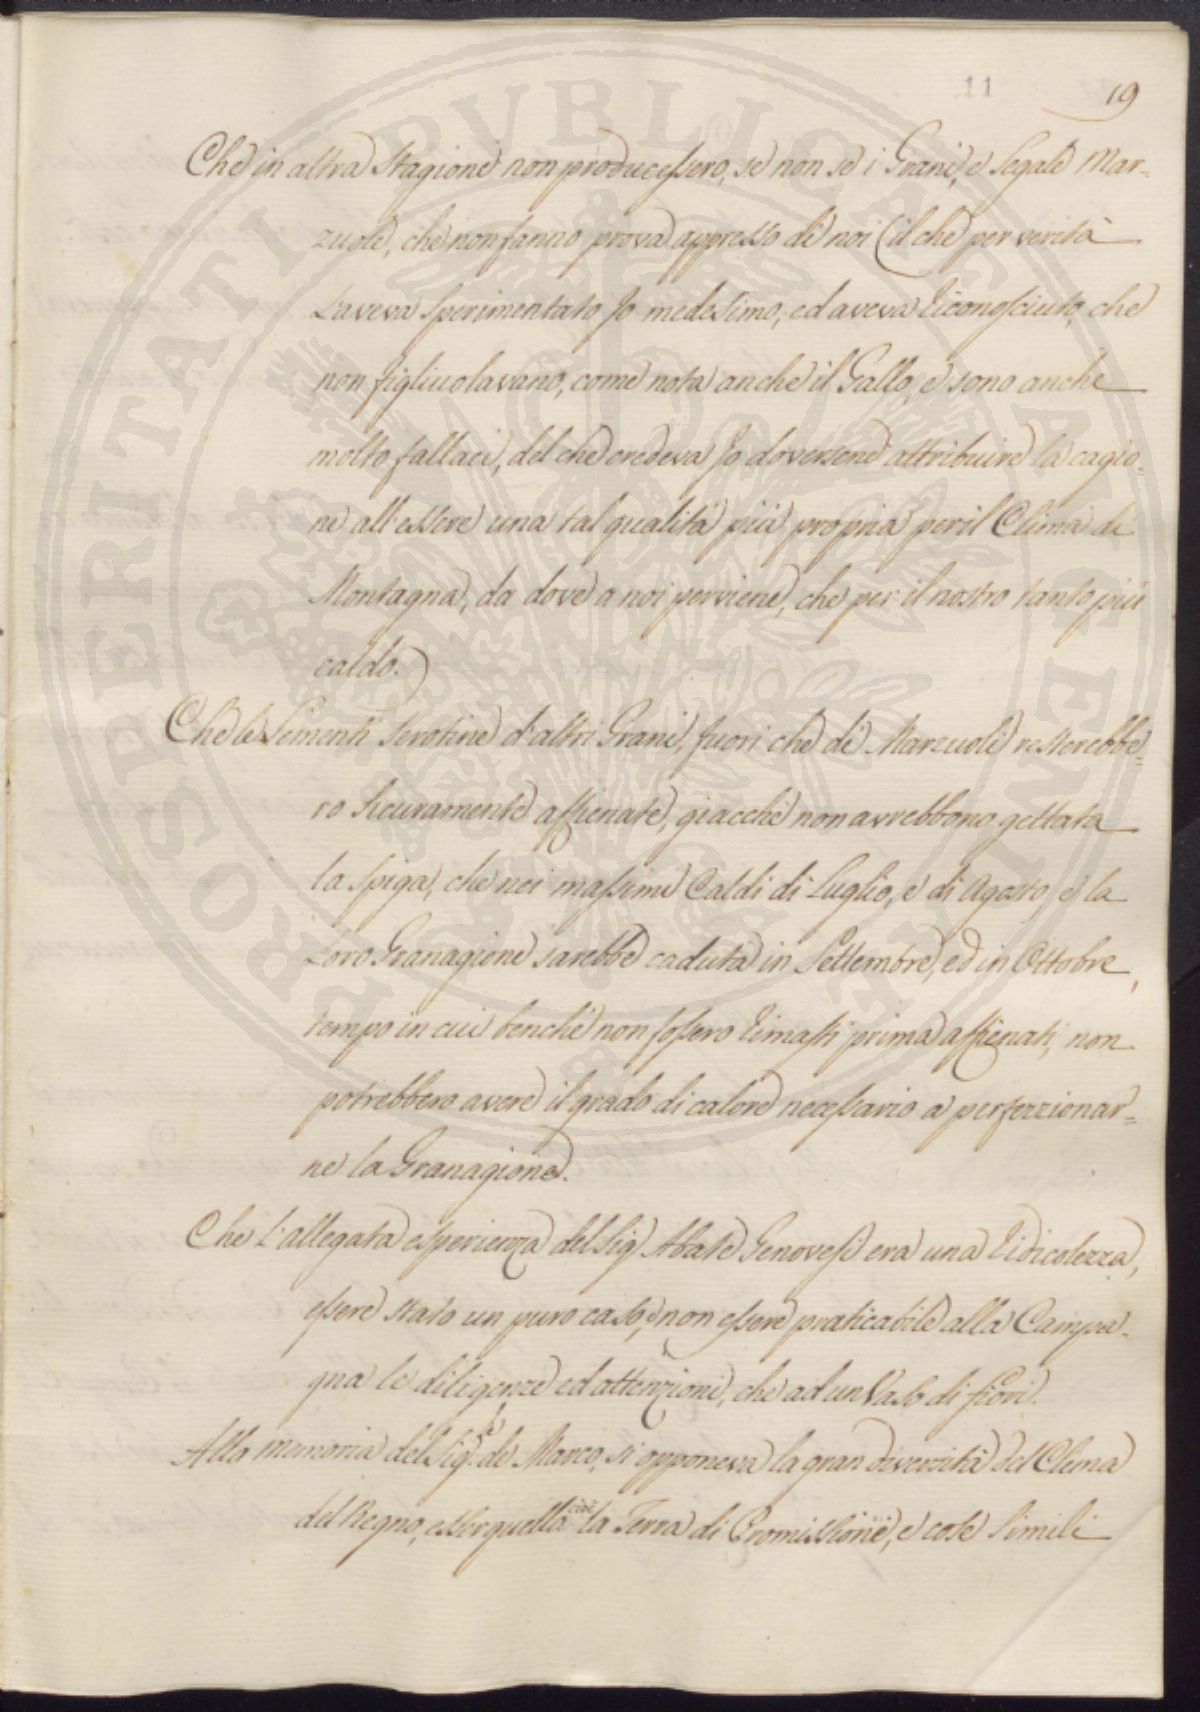 11
19
Che in altra Stagione non producessero, se non se i Grani, e Segale Mar-
zuole, che non fanno prova appresso di noi (il che per verità
l'aveva sperimentato Io medesimo, ed aveva riconosciuto, che
non figliuolavano, come nota anche il Gallo, e sono anche
molto fallaci, del che credeva Io doversene attribuire la cagio-
ne all'essere una tal qualità più propria per il Clima di
Montagna, da dove a noi perviene, che per il nostro tanto più
caldo.)
Che le Sementi serotine d'altri Grani, fuori che di Marzuoli resterebbe-
ro sicuramente affienate, giacchè non avrebbono gettata
la spiga, che nei massimi Caldi di Luglio, e di Agosto, e la
Loro Granagione sarebbe caduta in Settembre, ed in Ottobre,
tempo in cui benchè non fossero rimasti prima affienati, non
potrebbero avere il grado di calore necessario a perfezionar-
ne la Granagione.
Che l'allegata esperienza del Sig.r Abate Genovesi era una ridicolezza,
essere stato un puro caso, e non essere praticabile alla Campa-
gna le diligenze ed attenzioni, che ad un Vaso di fiori.
Alla memoria del Sig.r de Marco, si opponeva la gran diversità del Clima
del Regno, esser quella cioè la Terra di Promissione, e cose simili
PROSPERITATI PVBLICAE AVGENDAE